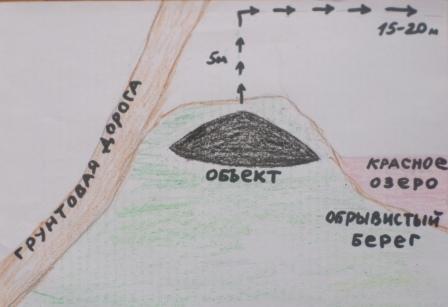 15-20 м
5м
ГРУНТОВАЯ ДОРОГА
ОБЪЕКТ
КРАСНОЕ
ОЗЕРО
ОБРЫВИСТЫЙ
БЕРЕГ